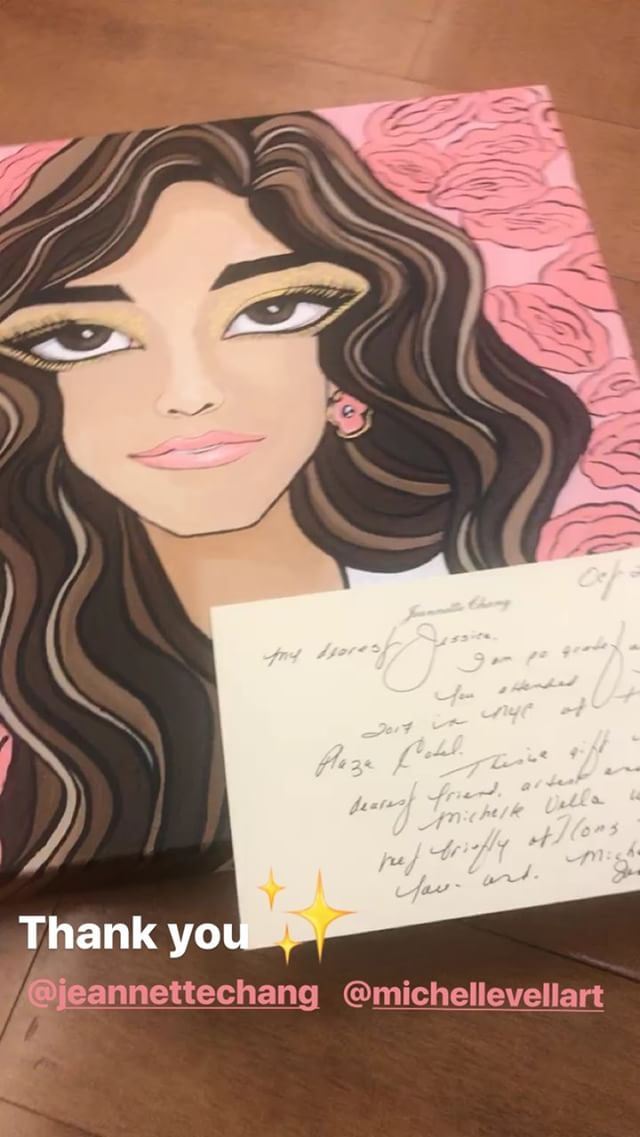 Oct 2
Jeannette Chang
My dearest Jessica,
I am so grateful
You attended
2017 in NYC at
Plaza Hotel.
This is a gift
dearest friend, artist and
Michelle Vella
met briefly at Icons
you and. Mich
Thank you
@jeannettechang @michellevellart